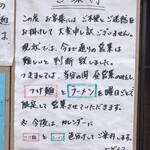 この度 お客様には ご不便、ご迷惑を
お掛けして 大変申し訳ございません。
現状では、今まで通りの営業は
難しいと 判断 致しました。
つきましては、当分の間 昼営業のみとし
つけ麺 と ラーメン を曜日ごとで
限定して 営業させていただきます。
今後は、カレンダーに
つけ麺 と ラーメン 色分けして